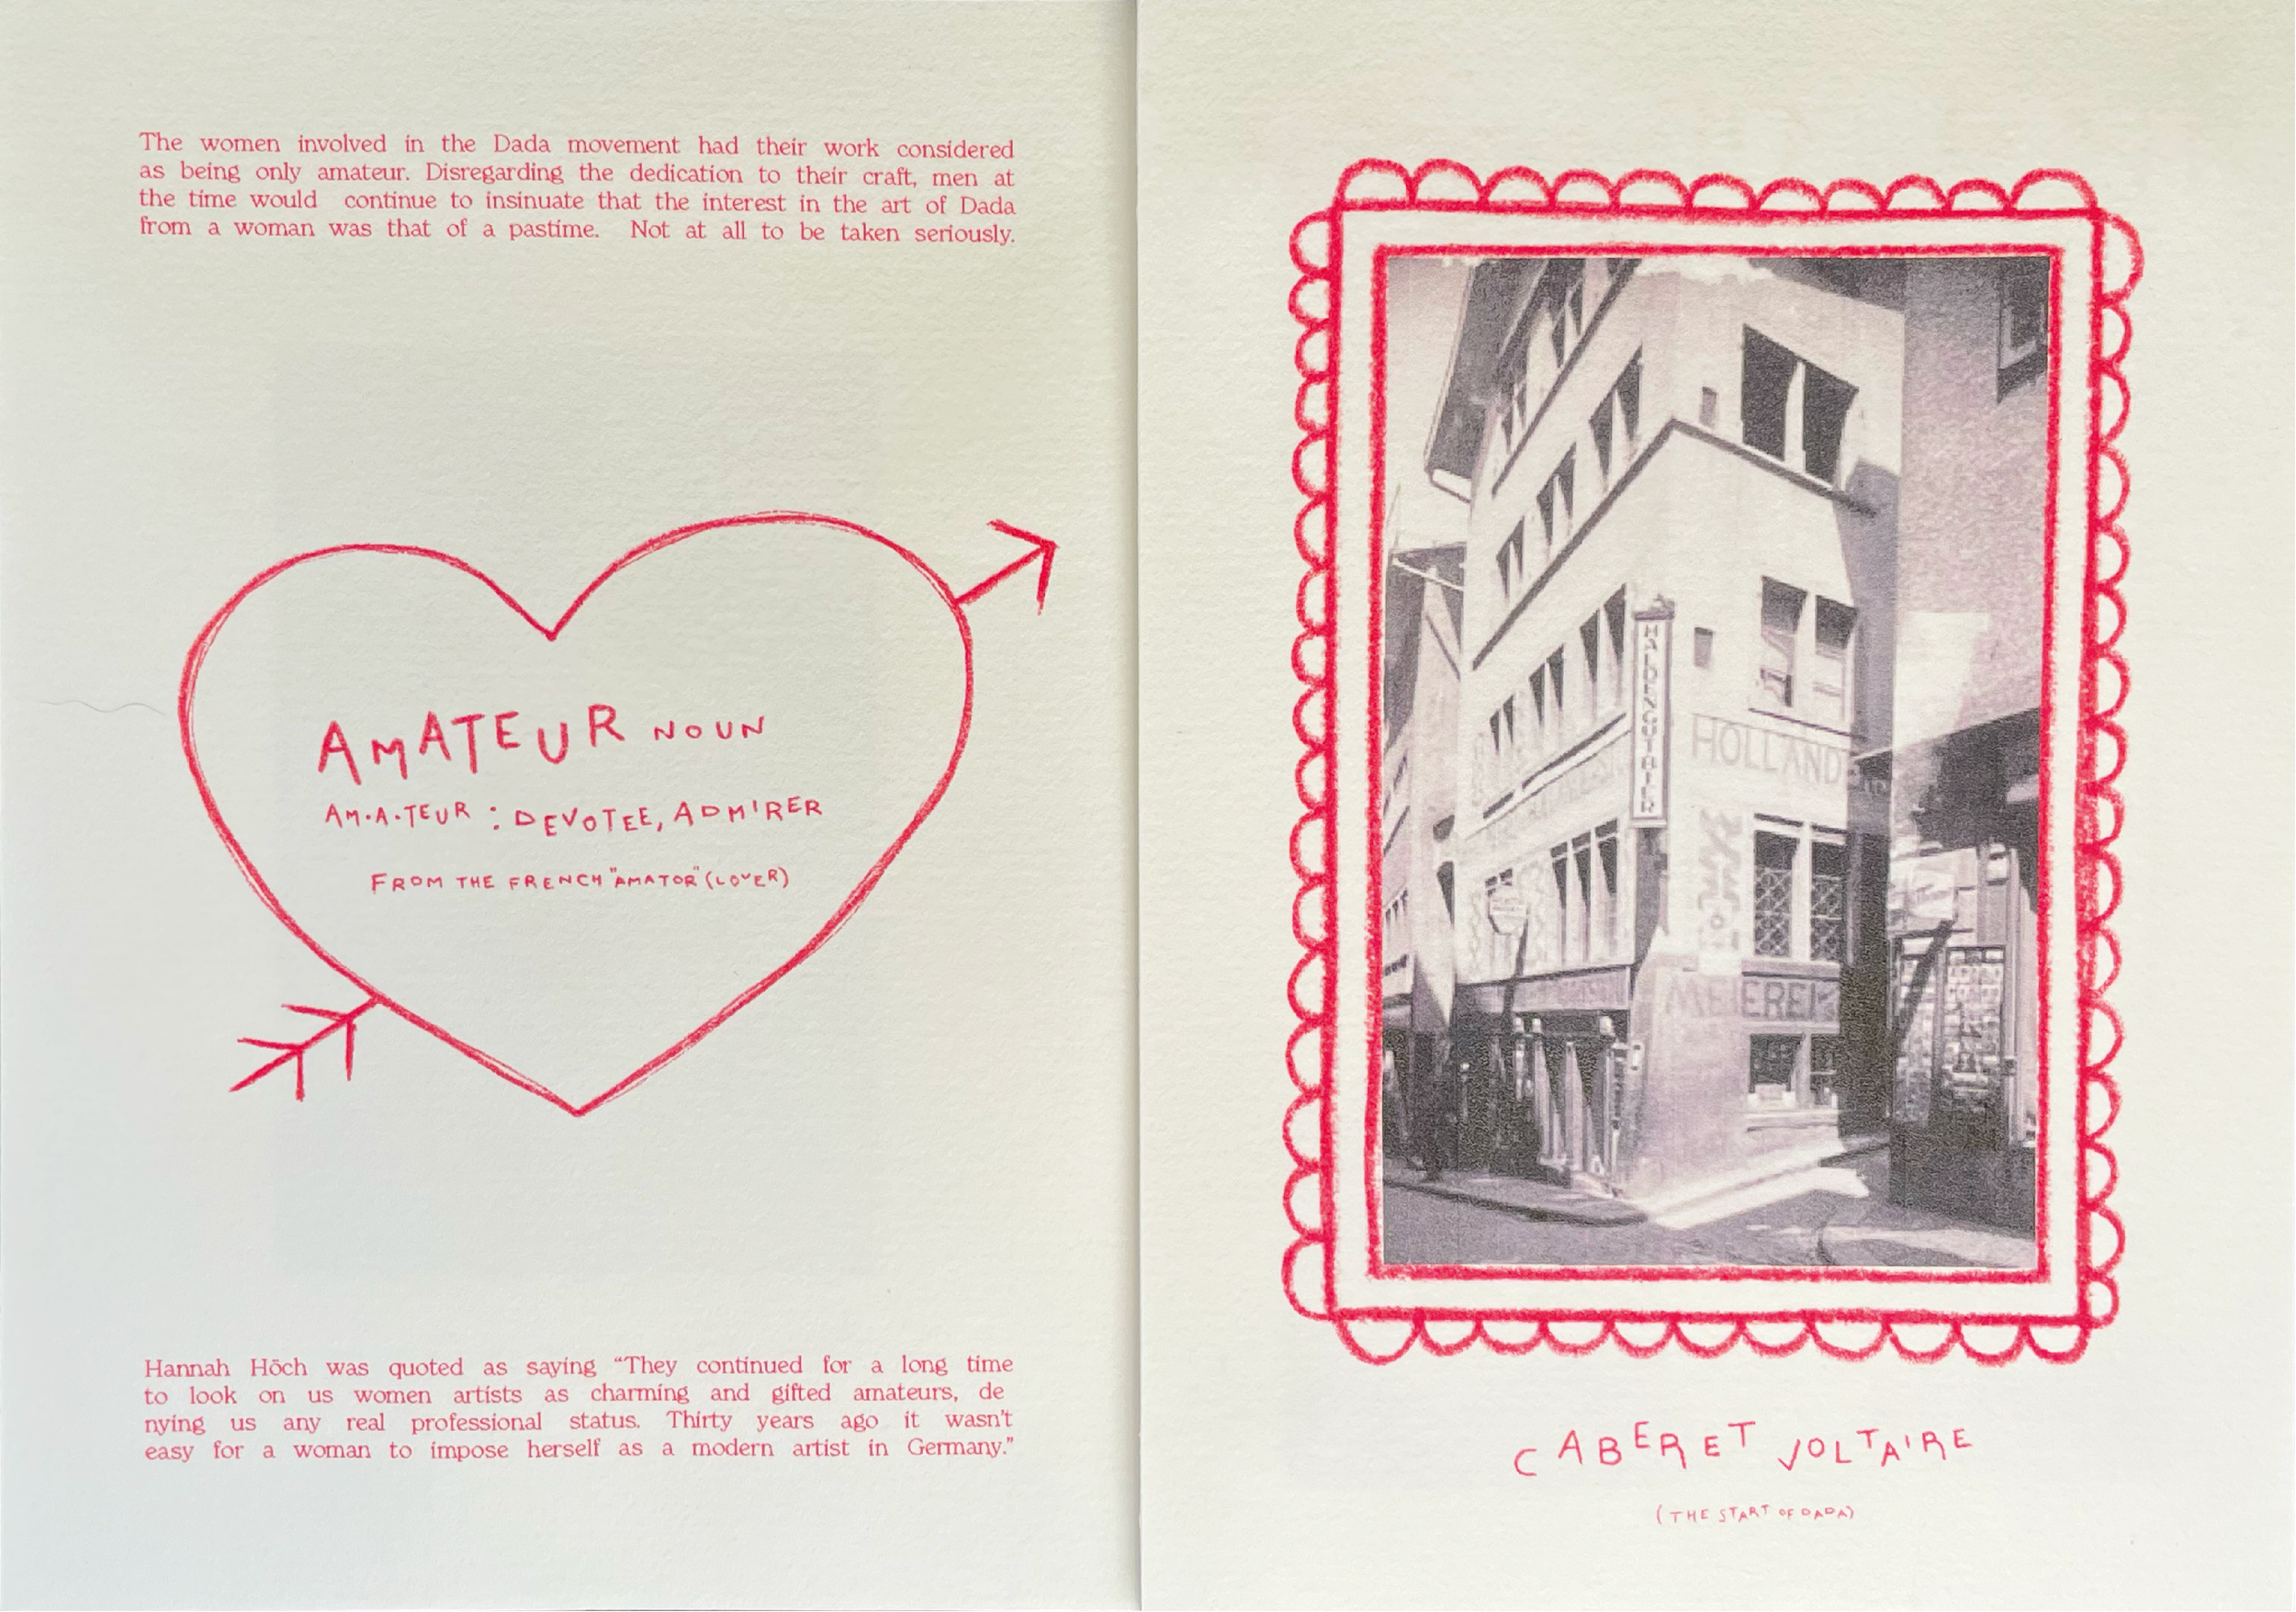 The women involved in the Dada movement had their work considered
as being only amateur. Disregarding the dedication to their craft, men at
the time would continue to insinuate that the interest in the art of Dada
from a woman was that of a pastime. Not at all to be taken seriously.
AMATEUR NOUN
AM·A·TEUR : DEVOTEE, ADMIRER
FROM THE FRENCH "AMATOR" (LOVER)
Hannah Höch was quoted as saying “They continued for a long time
to look on us women artists as charming and gifted amateurs, de
nying us any real professional status. Thirty years ago it wasn't
easy for a woman to impose herself as a modern artist in Germany.”
HOLLAND
MEIEREI
CABERET VOLTAIRE
(THE START OF DADA)